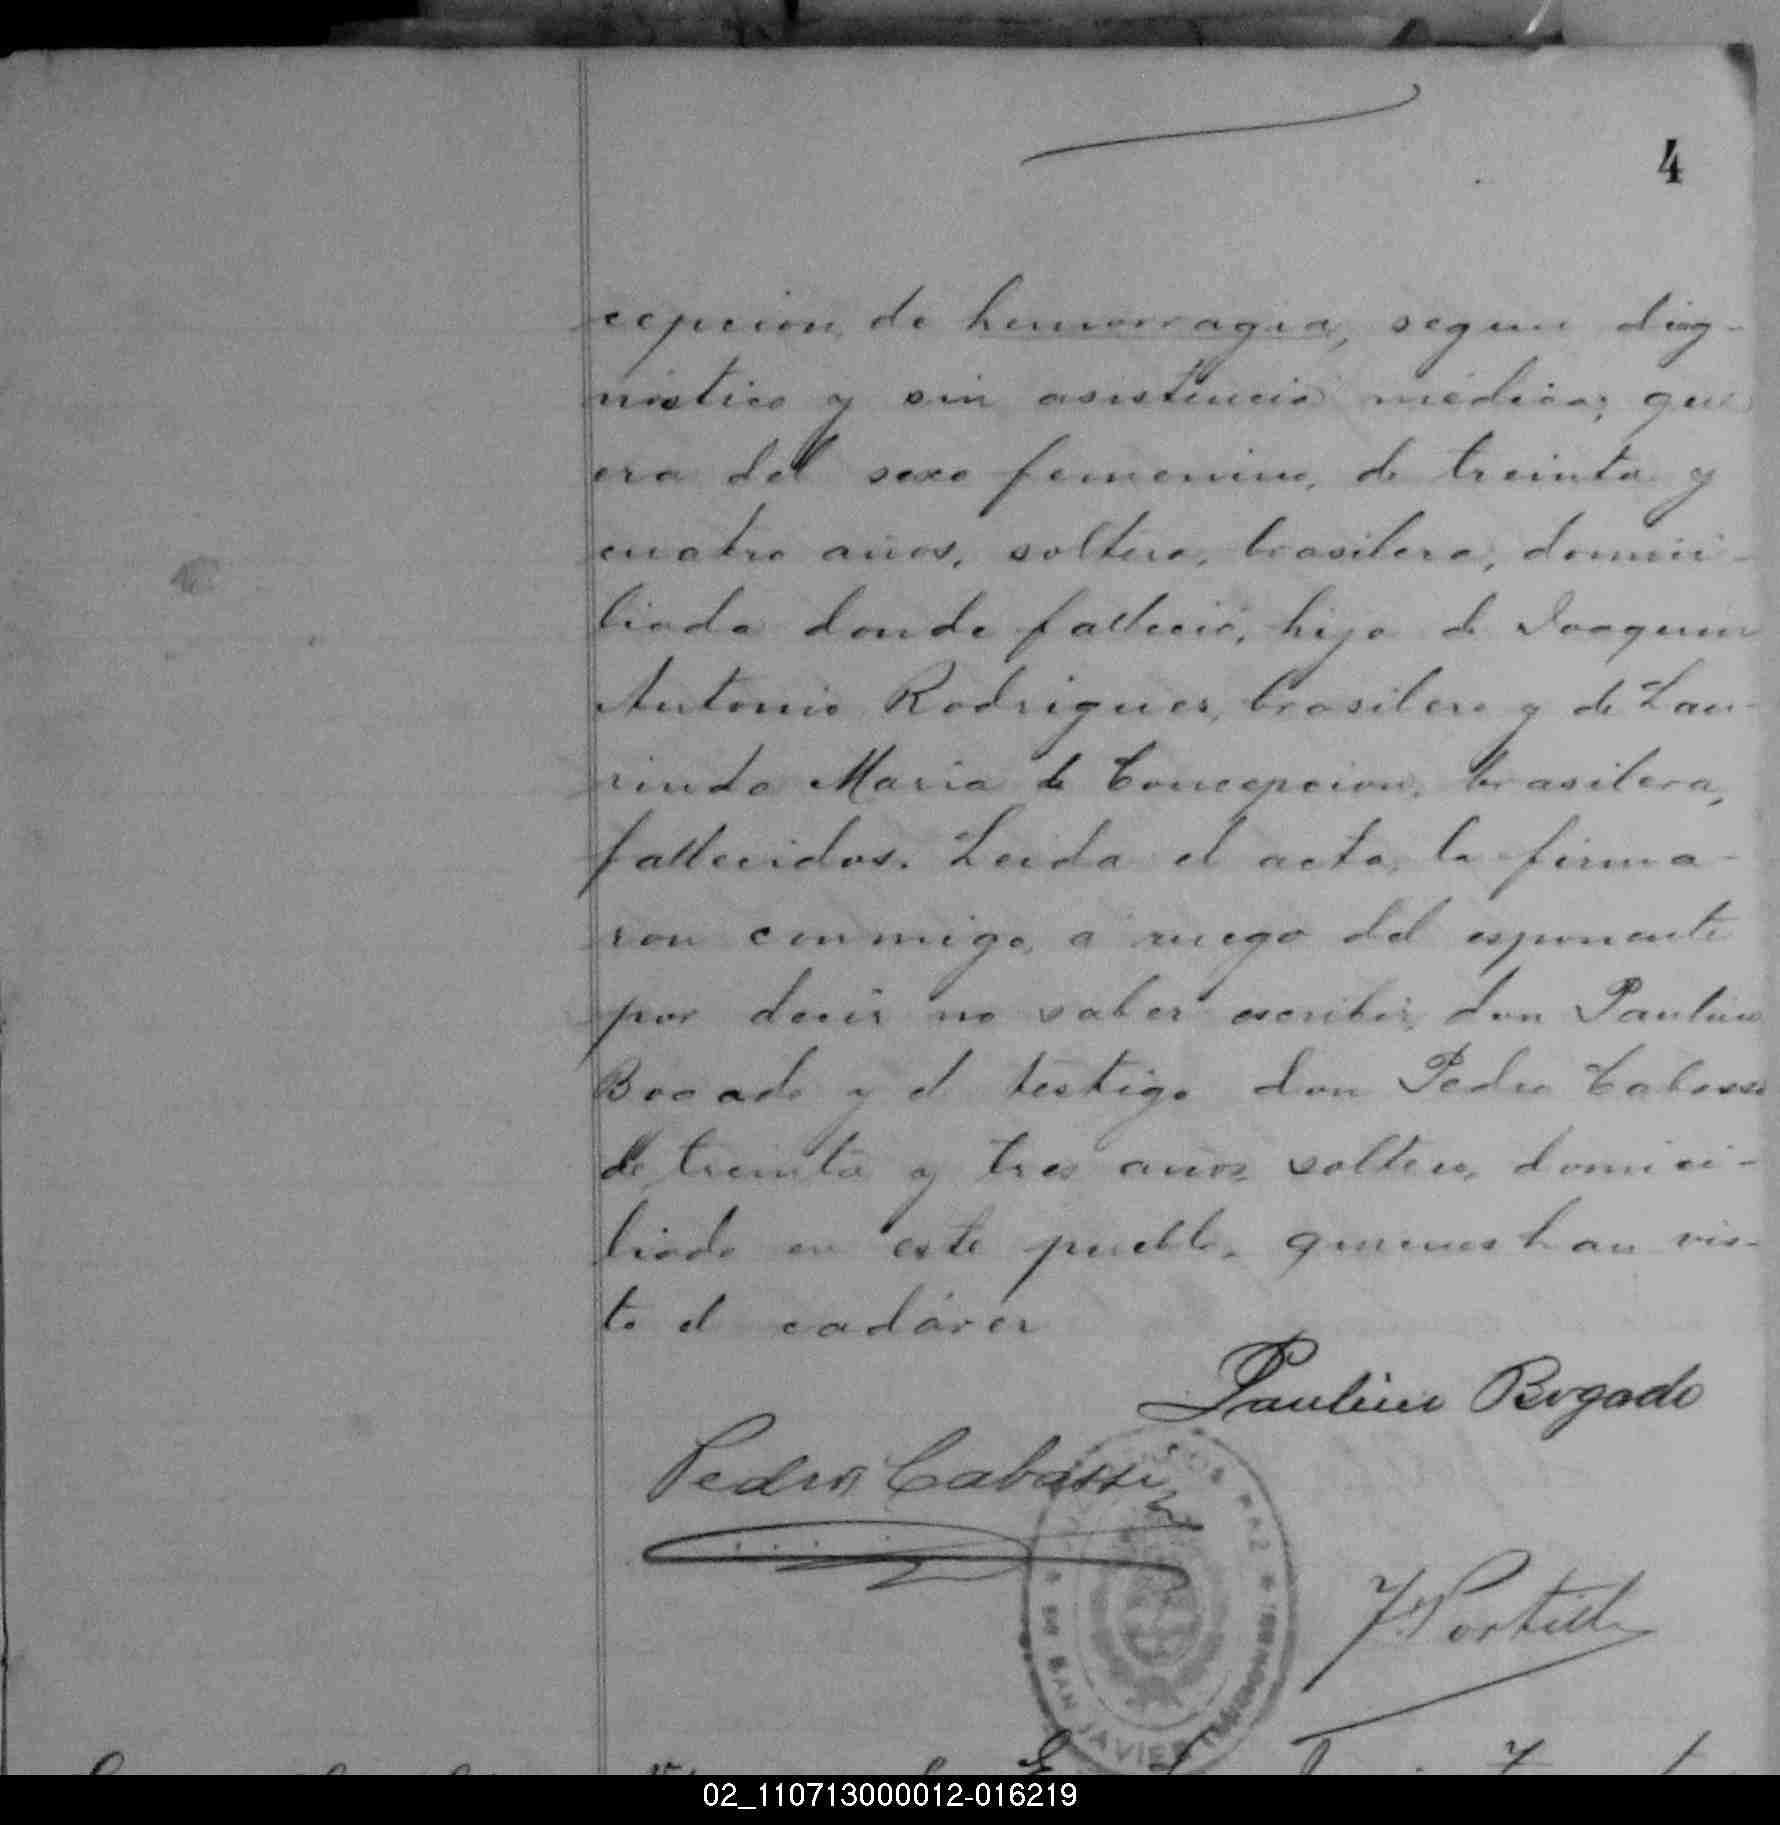 4
cepcion de hemorragia, segun diag-
nóstico y sin asistencia médica; que
era del sexo femenino, de treinta y
cuatro años, soltera, brasilera, domici-
liada donde falleció, hija de Joaquin
Antonio Rodrigues, brasilero y de Lau-
rinda Maria de Concepcion, brasilera,
fallecidos. Leida el acta, la firma-
ron conmigo, a ruego del esponente
por decir no saber escribir, don Paulino
Bogado y el testigo don Pedro Cabassi
de treinta y tres años, soltero, domici-
liado en este pueblo, quienes han vis-
to el cadáver
Paulino Bogado
Pedro Cabassi
J. Portillo
PAZ
DE SAN JAVIER
02_110713000012-016219